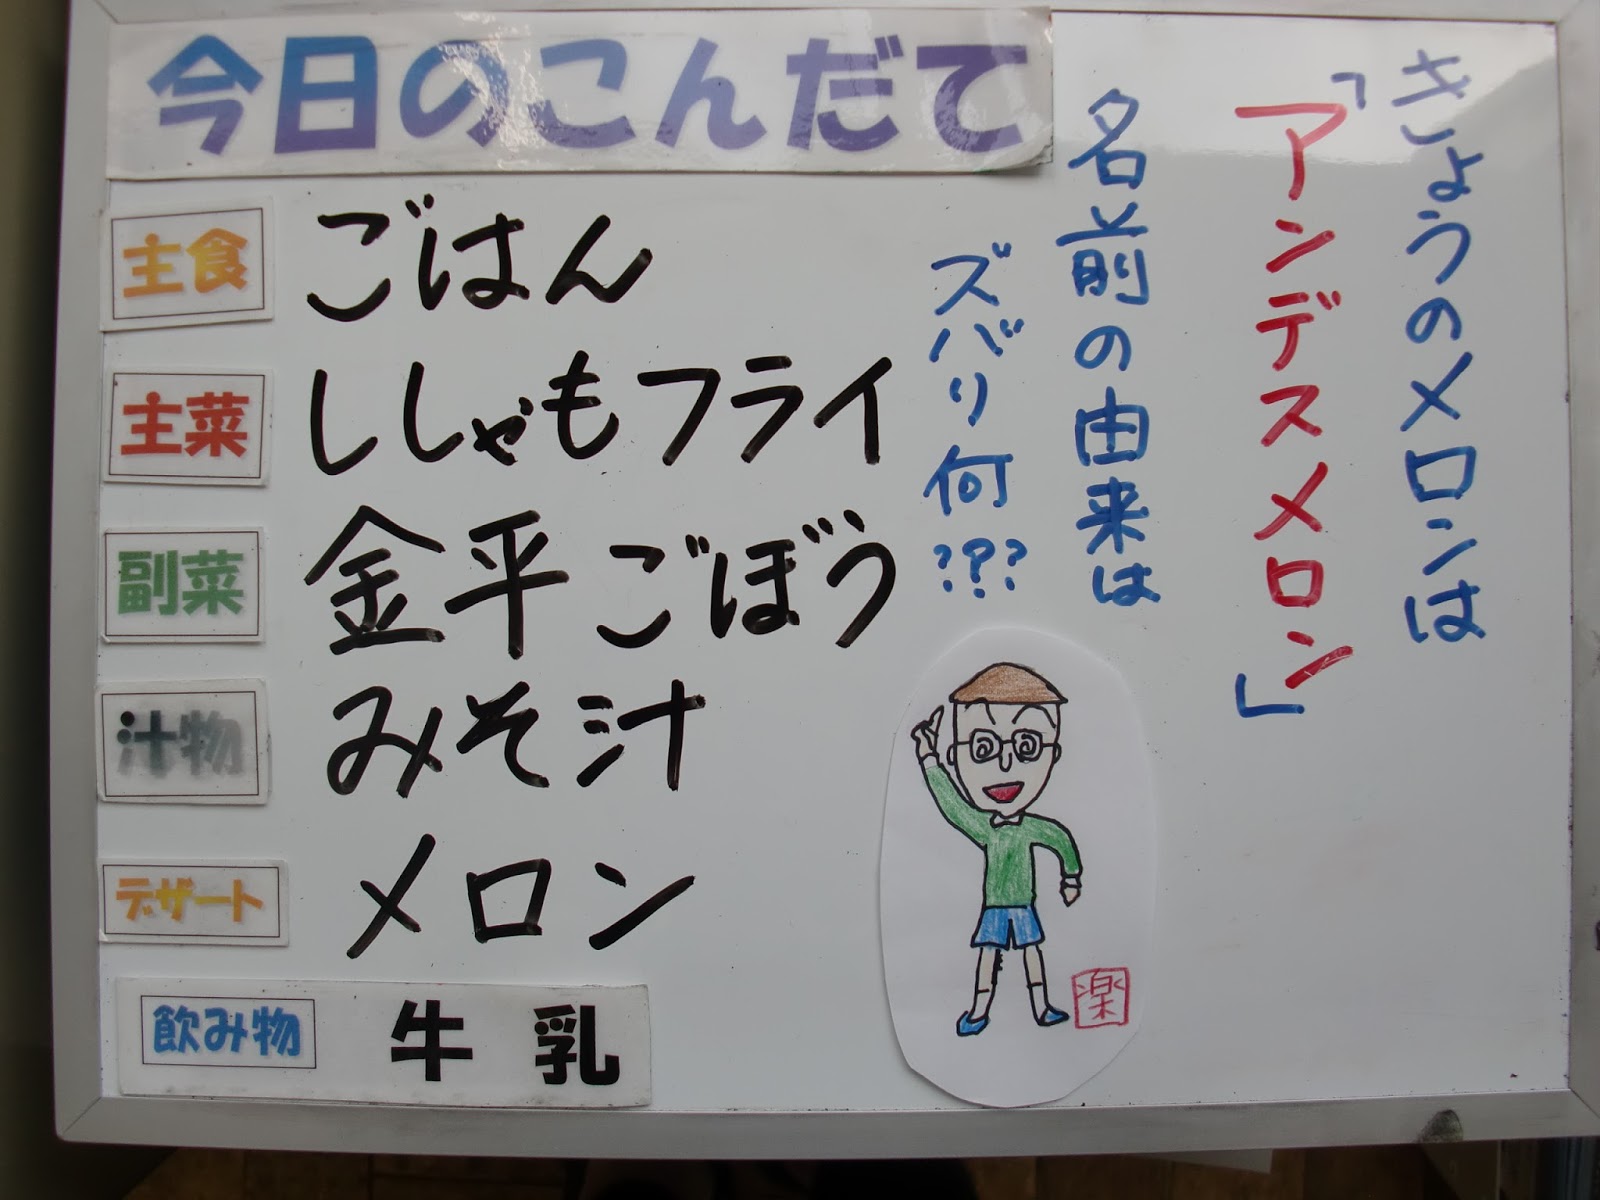 今日のこんだて
主食 ごはん
主菜 ししゃもフライ
副菜 金平ごぼう
汁物 みそ汁
デザート メロン
飲み物 牛乳
きょうのメロンは
「アンデスメロン」
名前の由来は
ズバリ何???
楽